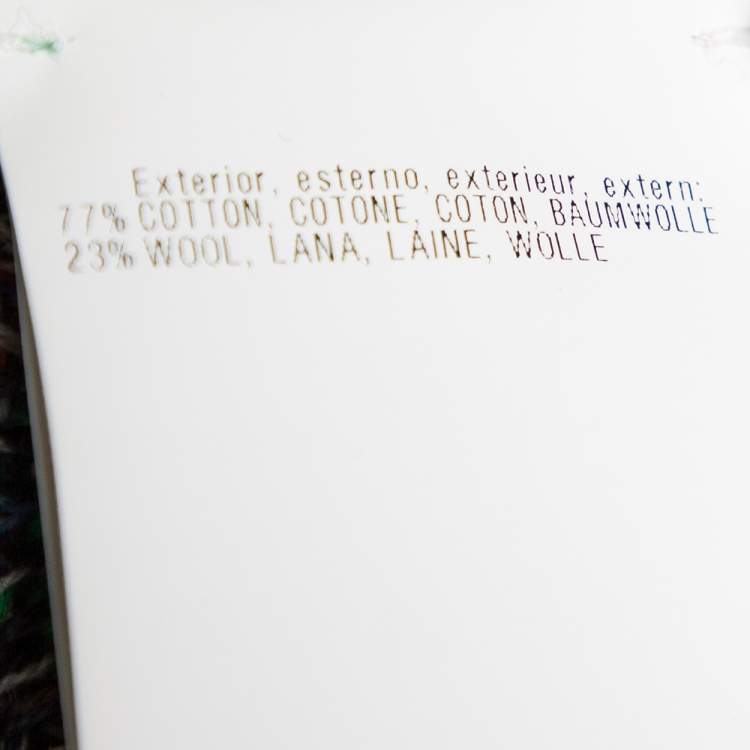 Exterior, esterno, exterieur, extern:
77% COTTON, COTONE, COTON, BAUMWOLLE
23% WOOL, LANA, LAINE, WOLLE